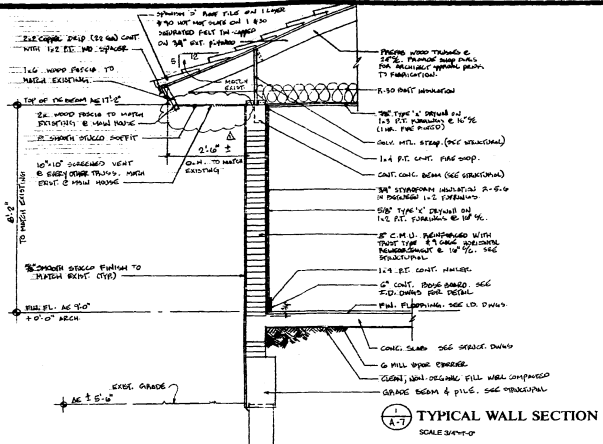 SPANISH "S" ROOF TILE ON 1 LAYER
#90 HOT MOP SLATE ON 1 #30
SATURATED FELT TIN-CAPPED
ON 3/4" EXT. PLYWOOD
2x2 COPPER DRIP (22 GA) CONT.
WITH 1x2 P.T. WD. SPACER
1x6 WOOD FASCIA TO
MATCH EXISTING
TOP OF TIE BEAM AE 17'-2"
2x WOOD FASCIA TO MATCH
EXISTING @ MAIN HOUSE
SMOOTH STUCCO SOFFIT
10"x10" SCREENED VENT
@ EVERY OTHER TRUSS. MATCH
EXIST. @ MAIN HOUSE
5
12
MATCH
EXIST.
2'-6" ±
O.H. TO MATCH
EXISTING
8'-2"
TO MATCH EXISTING
5/8" SMOOTH STUCCO FINISH TO
MATCH EXIST. (TYP)
FIN. FL. AE 9'-0"
+0'-0" ARCH.
EXIST. GRADE
AE ± 5'-6"
PREFAB WOOD TRUSSES @
24" O/C. PROVIDE SHOP DWGS
FOR ARCHITECT APPROVAL PRIOR
TO FABRICATION.
R-30 BATT INSULATION
5/8" TYPE 'X' DRYWALL ON
1x3 P.T. FURRING @ 16" O/C
(1 HR. FIRE RATED)
GALV. MTL. STRAP. (SEE STRUCTURAL)
1x4 P.T. CONT. FIRE STOP.
CONT. CONC. BEAM (SEE STRUCTURAL)
3/4" STYROFOAM INSULATION R-5.6
IN BETWEEN 1x2 FURRINGS.
5/8" TYPE 'X' DRYWALL ON
1x2 P.T. FURRINGS @ 16" O/C.
8" C.M.U. REINFORCED WITH
TRUSS TYPE #9 GAGE HORIZONTAL
REINFORCEMENT @ 16" O/C. SEE
STRUCTURAL
1x4 P.T. CONT. NAILER.
6" CONT. BASE BOARD. SEE
I.D. DWGS FOR DETAIL
FIN. FLOORING. SEE I.D. DWGS.
CONC. SLAB SEE STRUCT. DWGS
6 MILL VAPOR BARRIER
CLEAN, NON-ORGANIC FILL WELL COMPACTED
GRADE BEAM & PILE. SEE STRUCTURAL
1
A-7
TYPICAL WALL SECTION
SCALE 3/4"=1'-0"